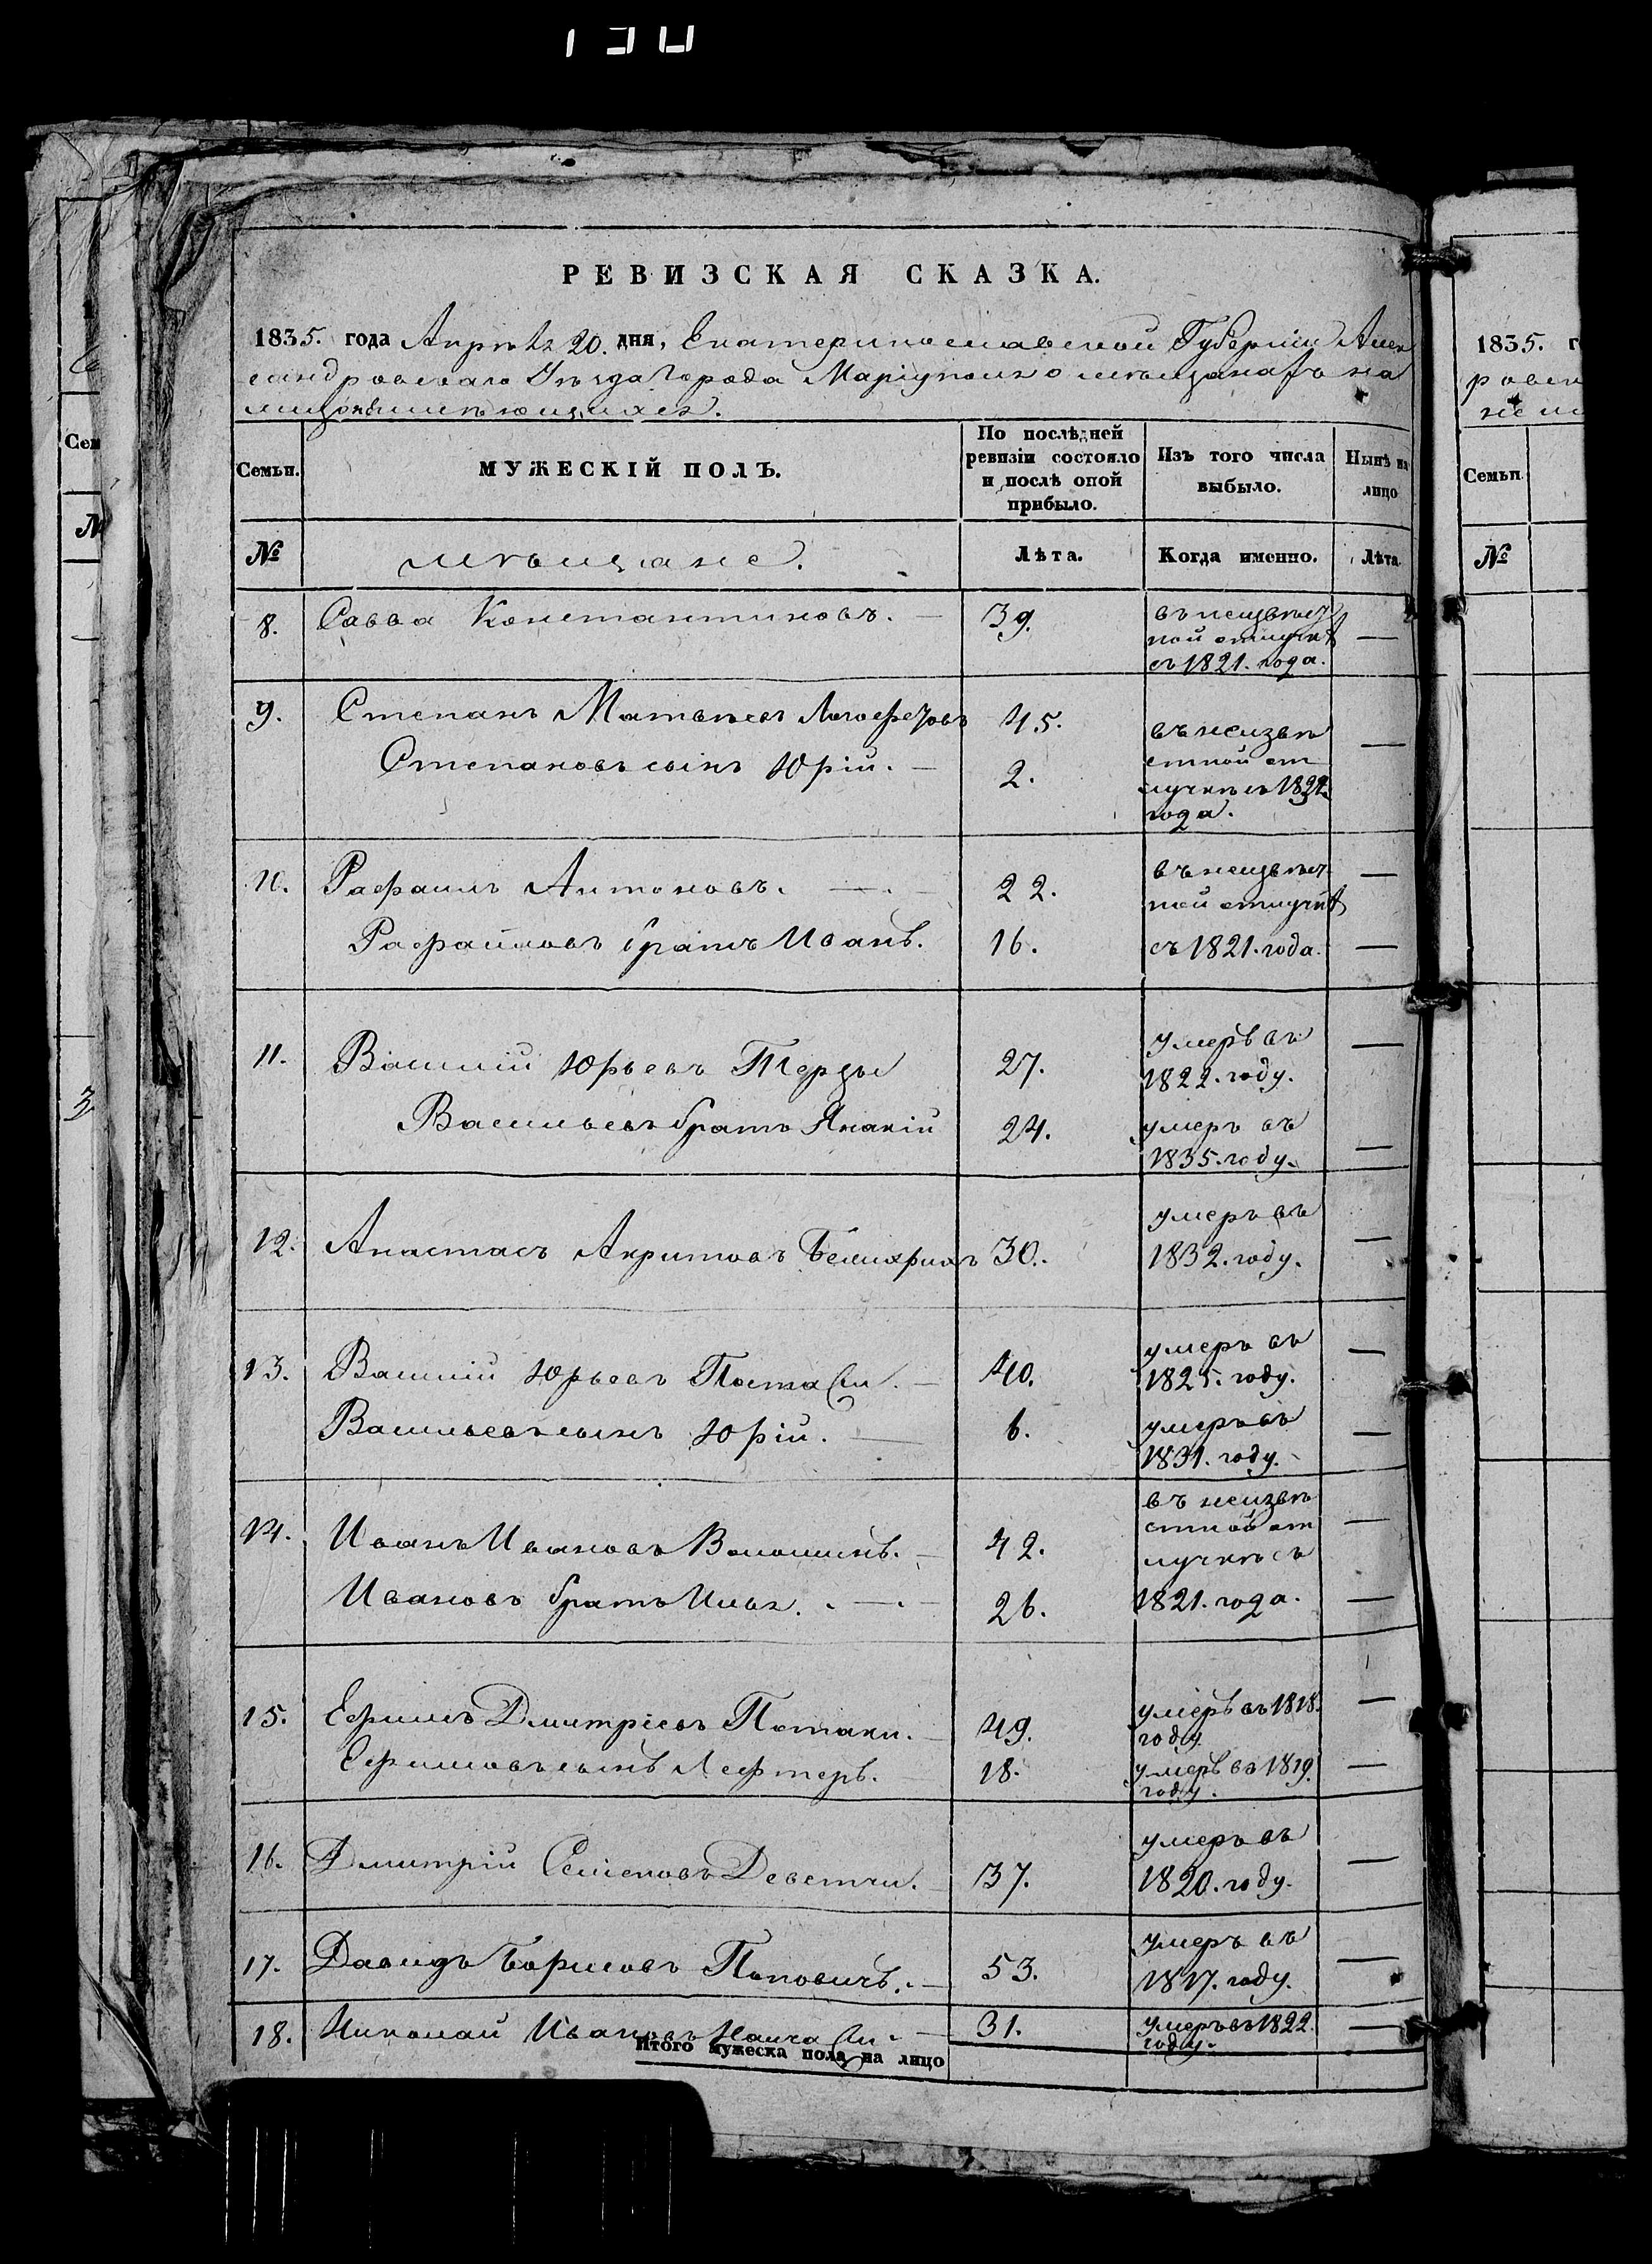 130
РЕВИЗСКАЯ СКАЗКА.
1835. года Апрѣля 20. дня, Екатеринославской Губерніи Алек
сандровскаго Уѣзда Города Маріуполя о мѣщанахъ на
лицо неимѣющихся.
Семьи.
МУЖЕСКІЙ ПОЛЪ.
По послѣдней
ревизіи состояло
и послѣ оной
прибыло.
Изъ того числа
выбыло.
Нынѣ на
лицо
№
мѣщане.
Лѣта.
Когда именно.
Лѣта.
8. Савва Константиновъ. — 39. въ неизвѣст —
ной отлучкѣ
съ 1821. года.
9. Степанъ Матвѣевъ 45. въ неизвѣ —
Степановъ сынъ Юрій. — 2. стной от
лучкѣ съ 1821.
года.
10. Рафаилъ Антоновъ. — 22. въ неизвѣст —
ной отлучкѣ
Рафаиловъ братъ Иванъ. 16. съ 1821. года. —
11. Василій Юрьевъ Терзы 27. умеръ въ —
1822. году.
Васильевъ братъ Акакій 24. умеръ въ
1835. году. —
12. Анастасъ Акритовъ 30. умеръ въ —
1832. году.
13. Василій Юрьевъ — 40. умеръ въ —
1825. году.
Васильевъ сынъ Юрій. — 6. умеръ въ —
1831. году.
14. Иванъ Ивановъ Волошинъ. — 42. въ неизвѣ —
стной от
лучкѣ съ
Ивановъ братъ Илья. — 26. 1821. года. —
15. Ефимъ Дмитріевъ Потаки. — 49. умеръ въ 1818. —
году.
Ефимовъ сынъ Лефтеръ. 18. умеръ въ 1819. —
году.
16. Дмитрій Семеновъ Деветчи. — 37. умеръ въ —
1820. году.
17. Давидъ Борисовъ Поповичъ. — 53. умеръ въ —
1817. году.
18. Николай Ивановъ — 31. умеръ въ 1822. —
году.
Итого мужеска пола на лицо
Семьи.
№
1835. г